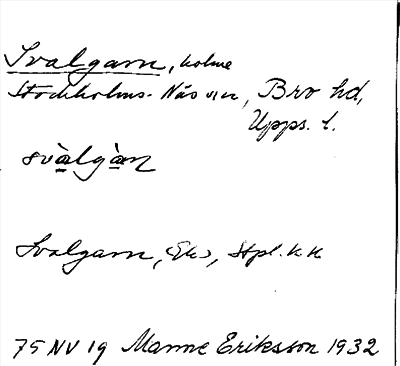 Svalgarn, holme
Stockholms-Näs sn, Bro hd,
Upps. l.
svàlgàn
Svalgarn, Ek, Stpl. KK
75 NV 19 Manne Eriksson 1932